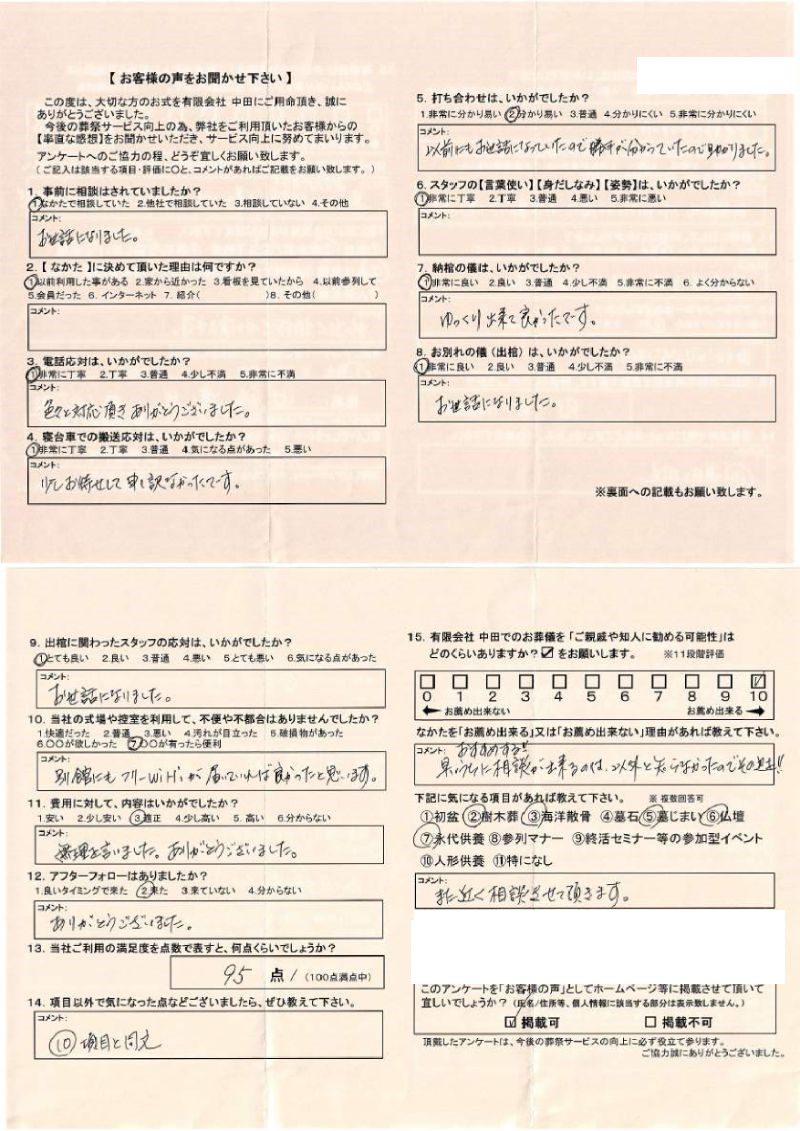 【 お客様の声をお聞かせ下さい 】
この度は、大切な方のお式を有限会社 中田にご用命頂き、誠に
ありがとうございました。
今後の葬祭サービス向上の為、弊社をご利用頂いたお客様からの
【率直な感想】をお聞かせいただき、サービス向上に努めてまいります。
アンケートへのご協力の程、どうぞ宜しくお願い致します。
(ご記入は該当する項目・評価に〇と、コメントがあればご記載をお願い致します。)
1. 事前に相談はされていましたか?
①なかたで相談していた 2.他社で相談していた 3.相談していない 4.その他
コメント:
お世話になりました。
2.【 なかた 】に決めて頂いた理由は何ですか?
①以前利用した事がある 2.家から近かった 3.看板を見ていたから 4.以前参列して
5.会員だった 6. インターネット 7. 紹介( )8. その他( )
コメント:
3. 電話応対は、いかがでしたか?
①非常に丁寧 2.丁寧 3.普通 4.少し不満 5.非常に不満
コメント:
色々と対応頂きありがとうございました。
4. 寝台車での搬送応対は、いかがでしたか?
①非常に丁寧 2.丁寧 3.普通 4.気になる点があった 5.悪い
コメント:
少しお待せして申し訳なかったです。
5. 打ち合わせは、いかがでしたか?
1.非常に分かり易い ②分かり易い 3.普通 4.分かりにくい 5.非常に分かりにくい
コメント:
以前にもお世話になっていたので勝手が分かっていたので助かりました。
6. スタッフの【言葉使い】【身だしなみ】【姿勢】は、いかがでしたか?
①非常に丁寧 2.丁寧 3.普通 4.悪い 5.非常に悪い
コメント:
7. 納棺の儀は、いかがでしたか?
①非常に良い 2.良い 3.普通 4.少し不満 5.非常に不満 6. よく分からない
コメント:
ゆっくり出来て良かったです。
8. お別れの儀(出棺)は、いかがでしたか?
①非常に良い 2.良い 3.普通 4.少し不満 5.非常に不満
コメント:
お世話になりました。
※裏面への記載もお願い致します。
9. 出棺に関わったスタッフの応対は、いかがでしたか?
①とても良い 2.良い 3.普通 4.悪い 5.とても悪い 6.気になる点があった
コメント:
お世話になりました。
10. 当社の式場や控室を利用して、不便や不都合はありませんでしたか?
1.快適だった 2.普通 3.悪い 4.汚れが目立った 5.破損物があった
6.〇〇が欲しかった ⑦〇〇が有ったら便利
コメント:
別館にもフリーWiFiが届いていれば良かったと思います。
11. 費用に対して、内容はいかがでしたか?
1.安い 2.少し安い ③適正 4.少し高い 5. 高い 6.分からない
コメント:
無理を言いました。ありがとうございました。
12. アフターフォローはありましたか?
1.良いタイミングで来た ②来た 3.来ていない 4.分からない
コメント:
ありがとうございました。
13. 当社ご利用の満足度を点数で表すと、何点くらいでしょうか?
95 点 / (100点満点中)
14. 項目以外で気になった点などございましたら、ぜひ教えて下さい。
コメント:
⑩項目と同じ
15. 有限会社 中田でのお葬儀を「ご親戚や知人に勧める可能性」は
どのくらいありますか?☑をお願いします。 ※11段階評価
0 1 2 3 4 5 6 7 8 9 10
お薦め出来ない お薦め出来る
なかたを「お薦め出来る」又は「お薦め出来ない」理由があれば教えて下さい。
コメント:
おすすめする!!
早いうちに相談が出来るのは、以外と知らなかったのでその理由!!
下記に気になる項目があれば教えて下さい。 ※ 複数回答可
①初盆 ②樹木葬 ③海洋散骨 ④墓石 ⑤墓じまい ⑥仏壇
⑦永代供養 ⑧参列マナー ⑨終活セミナー等の参加型イベント
⑩人形供養 ⑪特になし
コメント:
また近く相談させて頂きます。
このアンケートを「お客様の声」としてホームページ等に掲載させて頂いて
宜しいでしょうか?(氏名/住所等、個人情報に該当する部分は表示致しません。)
☑ 掲載可 □ 掲載不可
頂戴したアンケートは、今後の葬祭サービスの向上に必ず役立て参ります。
ご協力誠にありがとうございました。